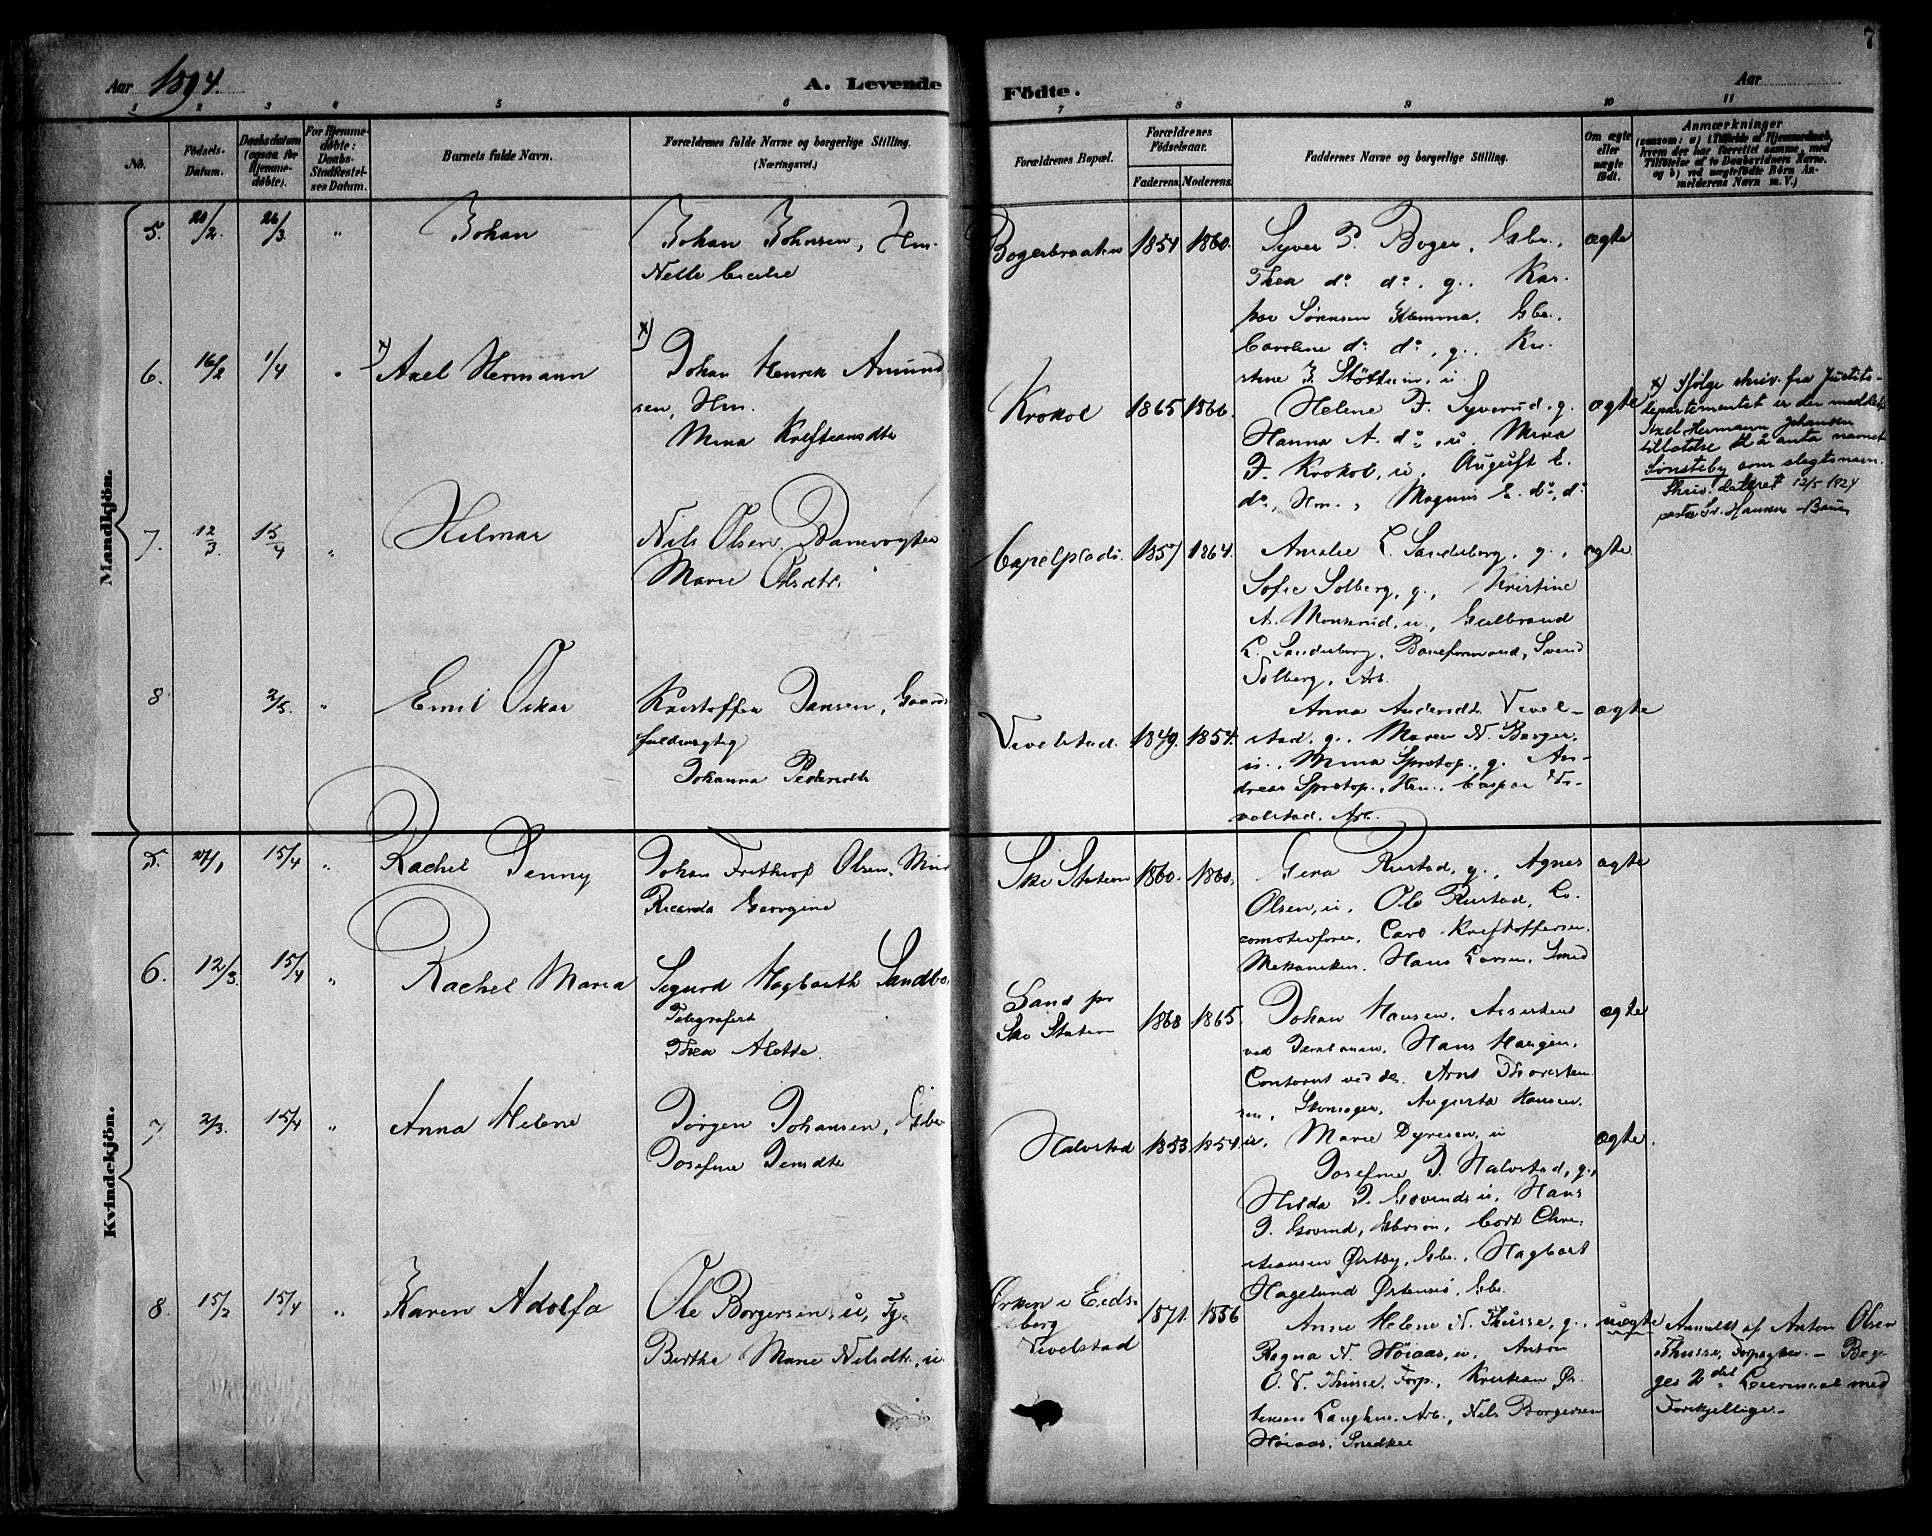 7
Aar 1894.
A. Levende
Födte.
Aar
1 2 3 4 5 6 7 8 9 10 11
No.
Födsels-
Datum.
Daabsdatum
(ogsaa for
Hjemme-
döbte).
For Hjemme-
döbte:
Daabs-
Stadfæstel-
ses Datum.
Barnets fulde Navn.
Forældrenes fulde Navne og borgerlige Stilling.
(Næringsvei.)
Forældrenes Bopæl.
Forældrenes
Födselsaar.
Faderens. Moderens.
Faddernes Navne og borgerlige Stilling.
Om ægte
eller
uægte
födt.
Anmærkninger
(saasom: a) i Tilfælde af Hjemmedaab,
hvem der har forrettet samme, med
Tilföielse af to Daabsvidners Navne,
og b) ved uægtefödte Börn An-
melderens Navn m. V.)
Mandkjön.
5. 20/2. 26/3 "
Johan
Johan Johnsen, Hm.
Nelle Cecilie
Bogerbraaten 1854 1860.
Syver P. Boger, Gbr.,
Thea do do, g., Kas-
par Sørensen Klemma, Gbr.,
Caroline do do, g., Kri-
stine J. Støttum, u.
ægte
6. 16/2 1/4 "
x) Axel Hermann
x) Johan Henrik Amund
sen, Hm.
Mina Kristiansdtr
Krokol 1865 1866.
Helene J. Syverud, g.
Hanna A. do, u. Mina
J. Krokol, u. August E.
do, Hm., Magnus E. do, do
ægte
x) Ifølge skriv. fra Justits-
departementet er der meddelt
Axel Hermann Johansen
tillatelse til å anta navnet
Sønsteby som slegtsnavn.
Skriv. datert 12/5 1924
7. 12/3 15/4 "
Hilmar
Nils Olsen, Banevogter
Marie Olsdtr.
Capelplads. 1857 1864.
Amalie L. Sandersborg, g.,
Sofie Solberg, g., Kristine
A. Monsrud, u., Gulbrand
L. Sandersborg, Baneformand, Svend
Solberg, Arb.
ægte
8 2/5. "
Emil Oskar
Kristoffer Jansen, Gaards
fuldmægtig
Johanna Pedersdtr
Vevelstad. 1849. 1854.
Anna Andersdtr. Vevel-
stad, g., Maren N. Berger,
u., Mina Sprotop., g. An-
dreas Sprotop., Hm., Caspar Ve-
velstad, Arb.
ægte
Kvindekjön.
5. 27/1 15/4 "
Rachel Jenny
Johan Frithjof Olsen, Mur
Ricarda Georgine
Ski Station 1860. 1860.
Gina Rustad, g., Agnes
Olsen, u., Ole Rustad, Lo-
comotivfører, Carl Kristoffersen,
Mekaniker, Hans Larsen, Smed
ægte
6. 12/3. 15/4 "
Rachel Maria
Sigurd Hagbarth Sandbo
Telegrafist
Thea Alette.
Sand pr
Ski Station 1868 1865.
Johan Hansen, Assistent
ved Jernbanen, Hans Haugen,
Contorist ved do. Arnt Thoresten
sen, Skomager, Augusta Hansen,
u. Marie Dyresen, u
ægte
7. 2/3. 15/4 "
Anna Helene
Jørgen Johansen, Gbr
Josefine Jensdtr
Halvstad 1853 1854.
Josefine J. Halvstad, g.,
Hilda J. Govind, u., Hans
J. Govind, Gbrsøn, Carl Chri-
stiansen Østby, Gbr., Hagbart
Hagelund Østensiø, Gbr.
ægte.
8. 15/2 15/4 "
Karen Adolfa
Ole Borgersen, u, Tj.
Birthe Marie Nilsdtr., u
Ørken i Eids-
berg
Vevelstad
1871. 1856
Anne Helene N. Thusse, g.,
Ragna N. Høiaas, u., Anton
O. V. Thusse, Forp., Kristian Øs-
tensen Langhus, Arb., Nils Borgersen
Høiaas, Snedker
uægte
Anmeldt af Anton Olsen
Thusse, Forpagter. – Beg-
ges 2det Leiermaal med
Forskjellige. –